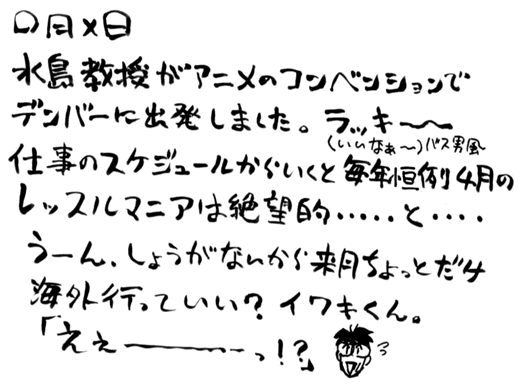 ○月×日
水島教授がアニメのコンベンションで
デンバーに出発しました。ラッキ〜〜
(いいなぁ〜)バス男風
仕事のスケジュールからいくと毎年恒例4月の
レッスルマニアは絶望的‥‥‥と‥‥
うーん、しょうがないから来月ちょっとだけ
海外行っていい？イワキくん。
「ええ————っ!?」